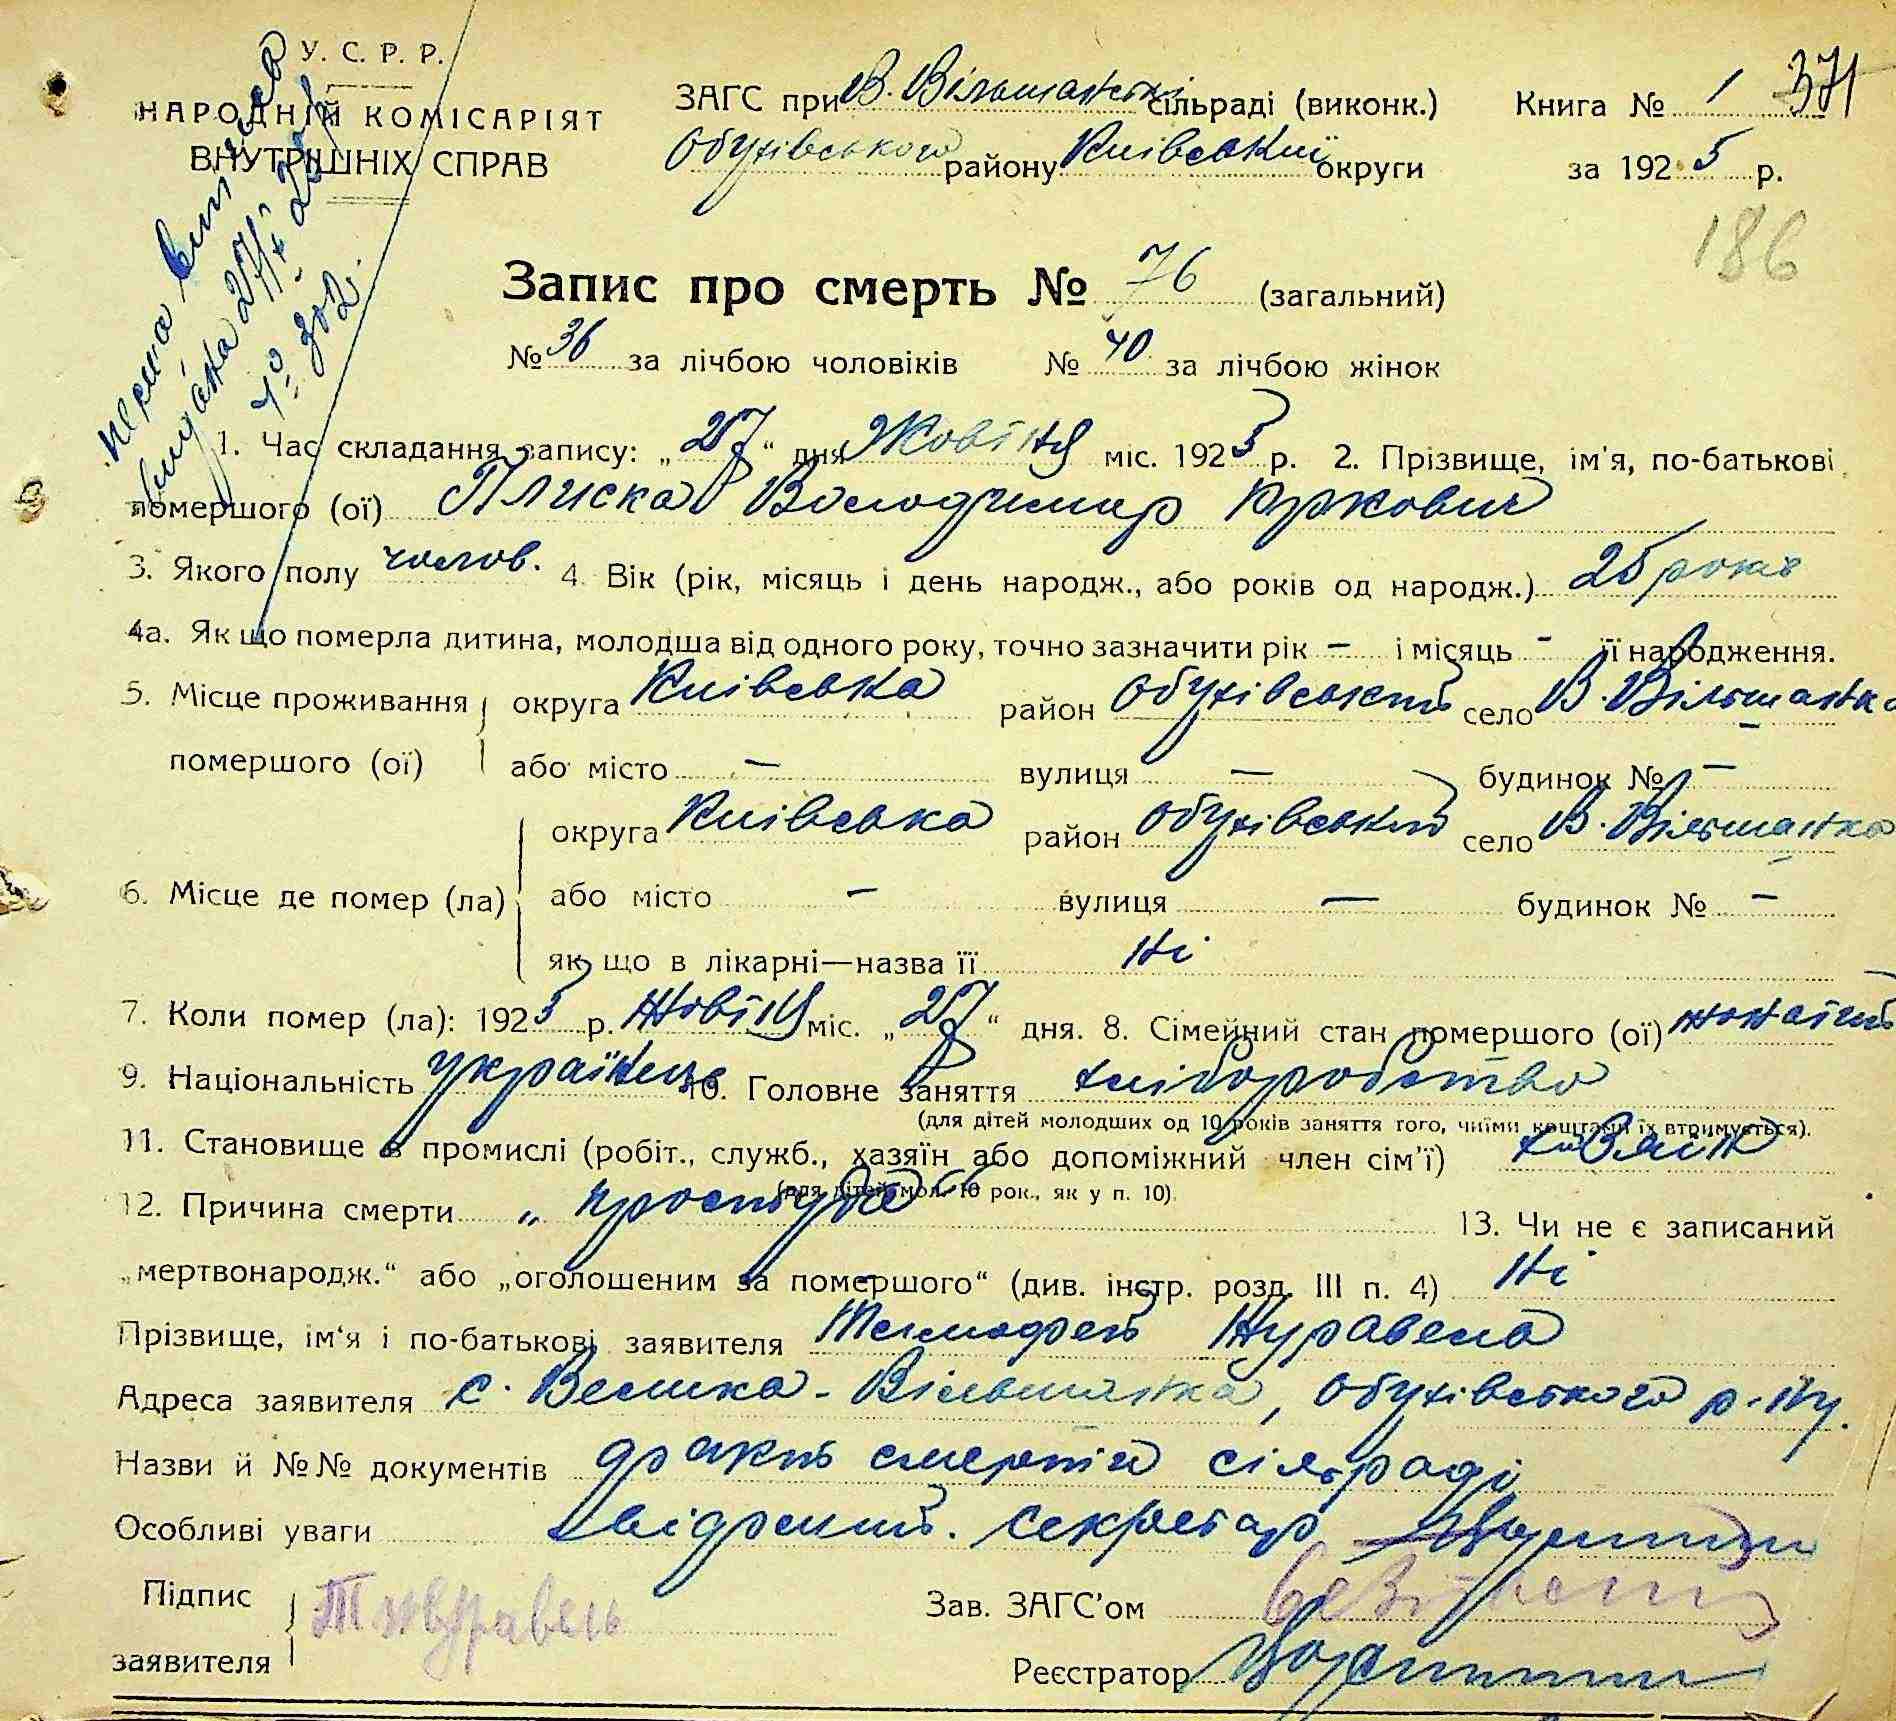 У. С. Р. Р.
НАРОДНІЙ КОМІСАРІЯТ
ВНУТРІШНІХ СПРАВ
ЗАГС при В. Вільшанській сільраді (виконк.)
Обухівського району Київської округи
Книга № 1 371
за 1925 р.
186
Запис про смерть № 76 (загальний)
№ 36 за лічбою чоловіків № 40 за лічбою жінок
1. Час складання запису: „27“ дня Жовтня міс. 1925 р. 2. Прізвище, ім'я, по-батькові
помершого (ої) Плиска Володимир Юркович
3. Якого полу чолов. 4. Вік (рік, місяць і день народж., або років од народж.) 25 років
4а. Як що померла дитина, молодша від одного року, точно зазначити рік – і місяць - її народження.
5. Місце проживання округа Київська район Обухівський село В. Вільшанка
помершого (ої) або місто — вулиця — будинок № —
округа Київська район Обухівський село В. Вільшанка
6. Місце де помер (ла) або місто — вулиця — будинок № —
як що в лікарні—назва її Ні
7. Коли помер (ла): 1925 р. Жовтня міс. „27“ дня. 8. Сімейний стан помершого (ої) жонатий
9. Національність Українець 10. Головне заняття хліборобство
(для дітей молодших од 10 років заняття того, чиїми коштами їх втримується).
11. Становище в промислі (робіт., служб., хазяїн або допоміжний член сім'ї) хазяїн
(для дітей мол. 10 рок., як у п. 10).
12. Причина смерти „простуда“ 13. Чи не є записаний
„мертвонародж.“ або „оголошеним за помершого“ (див. інстр. розд. III п. 4) Ні
Прізвище, ім‘я і по-батькові заявителя Тимофей Журавель
Адреса заявителя с. Велика-Вільшанка, Обухівського р-ну.
Назви й №№ документів факт смерти сільраді
Особливі уваги відомий. Секретар
Підпис
заявителя Т Журавель
Зав. ЗАГС'ом
Реєстратор